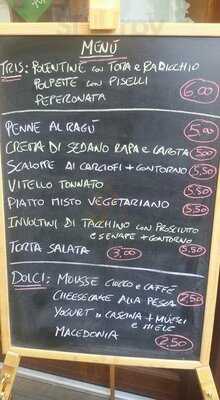 MENÚ
TRIS: POLENTINE CON TOMA E RADICCHIO
POLPETTE CON PISELLI
PEPERONATA 6,00
PENNE AL RAGÚ 5,00
CREMA DI SEDANO RAPA E CAROTA 5,00
SCALOPPE AI CARCIOFI + CONTORNO 5,50
VITELLO TONNATO 5,50
PIATTO MISTO VEGETARIANO 5,50
INVOLTINI DI TACCHINO CON PROSCIUTO
E SENAPE + CONTORNO 5,50
TORTA SALATA 3,00
DOLCI: MOUSSE CIOCCO E CAFFÈ
CHEESECAKE ALLA PESCA 2,50
YOGURT CON MUESLI
E MIELE
MACEDONIA 2,50